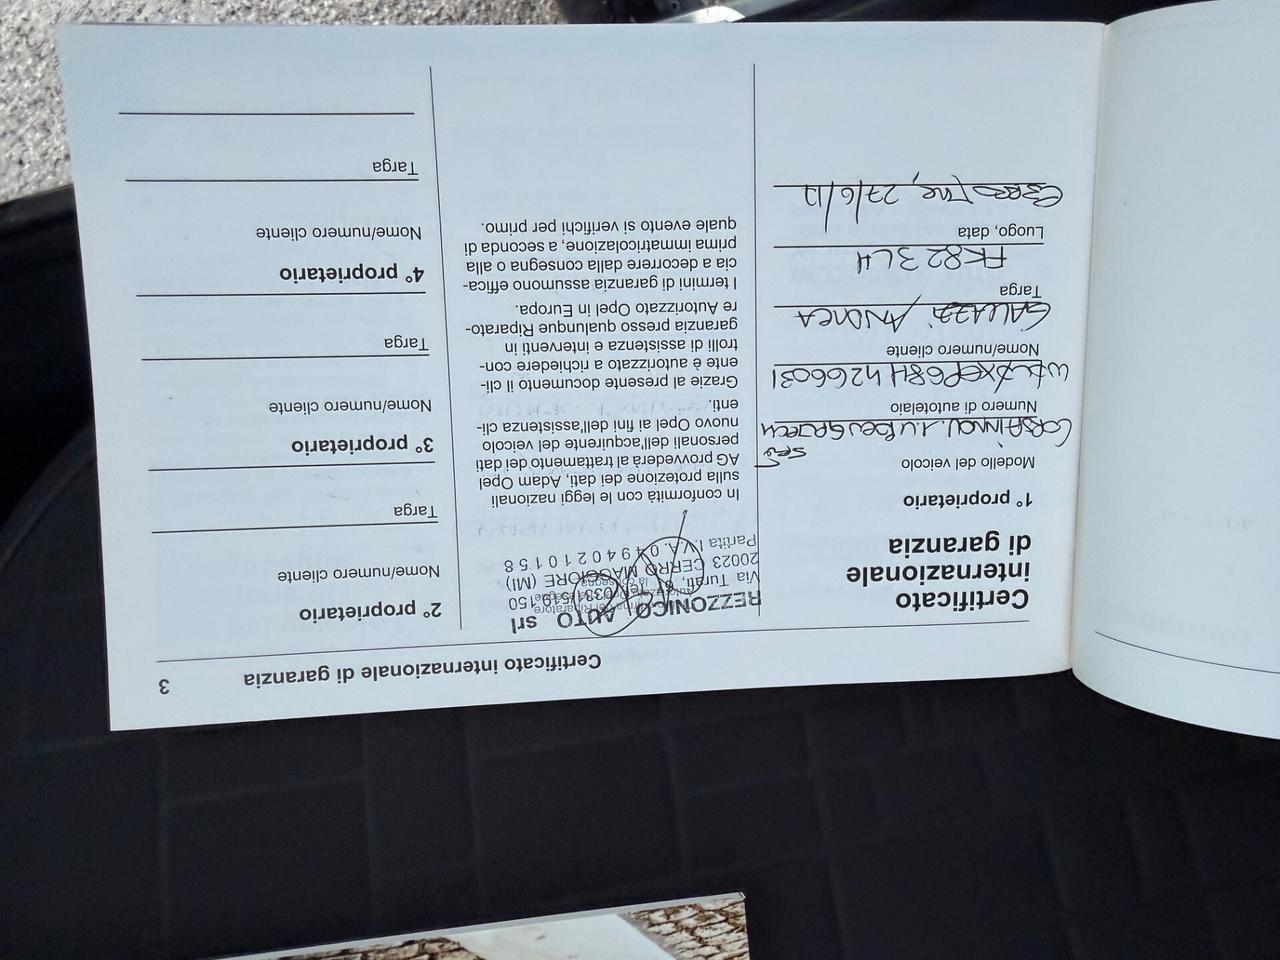 Certificato internazionale di garanzia
3
Certificato
internazionale
di garanzia
1° proprietario
Modello del veicolo
Numero di autotelaio
Nome/numero cliente
GALLAZZI ANDREA
Targa
FK823LH
Luogo, data
27/6/17
REZZONICO AUTO srl
Via Turati,
20023 CERRO MAGGIORE (MI)
Partita I.V.A. 04940210158
In conformità con le leggi nazionali
sulla protezione dei dati, Adam Opel
AG provvederà al trattamento dei dati
personali dell'acquirente del veicolo
nuovo Opel ai fini dell'assistenza cli-
enti.
Grazie al presente documento il cli-
ente è autorizzato a richiedere con-
trolli di assistenza e interventi in
garanzia presso qualunque Riparato-
re Autorizzato Opel in Europa.
I termini di garanzia assumono effica-
cia a decorrere dalla consegna o alla
prima immatricolazione, a seconda di
quale evento si verifichi per primo.
2° proprietario
Nome/numero cliente
Targa
3° proprietario
Nome/numero cliente
Targa
4° proprietario
Nome/numero cliente
Targa